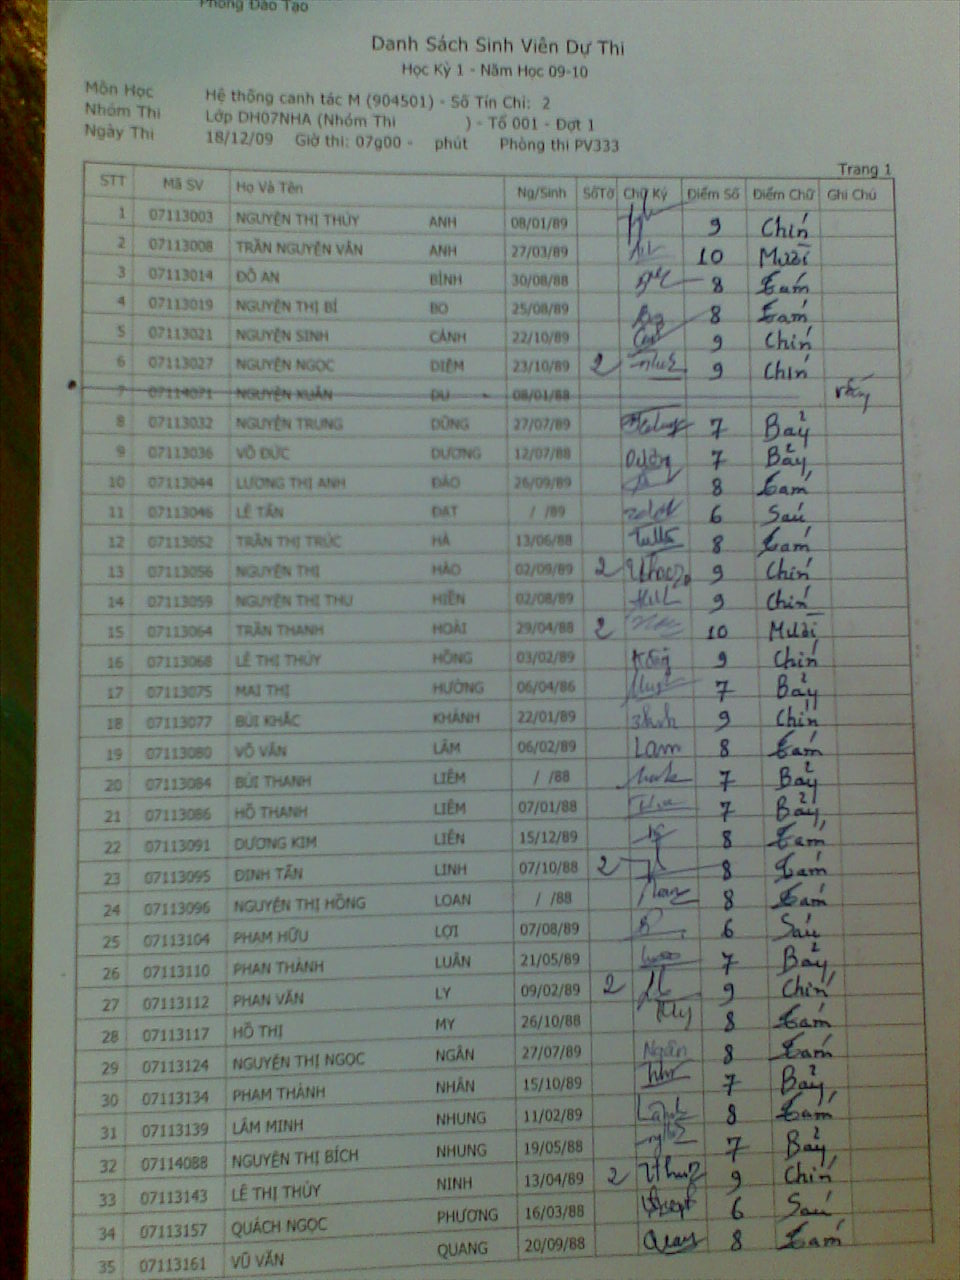 Phòng Đào Tạo
Danh Sách Sinh Viên Dự Thi
Học Kỳ 1 - Năm Học 09-10
Môn Học Hệ thống canh tác M (904501) - Số Tín Chỉ: 2
Nhóm Thi Lớp DH07NHA (Nhóm Thi ) - Tổ 001 - Đợt 1
Ngày Thi 18/12/09 Giờ thi: 07g00 - phút Phòng thi PV333
Trang 1
STT Mã SV Họ Và Tên Ng/Sinh SốTờ Chữ Ký Điểm Số Điểm Chữ Ghi Chú
1 07113003 NGUYỄN THỊ THÙY ANH 08/01/89 9 Chín
2 07113008 TRẦN NGUYÊN VÂN ANH 27/03/89 10 Mười
3 07113014 ĐỖ AN BÌNH 30/08/88 8 Tám
4 07113019 NGUYỄN THỊ BÍ BO 25/08/89 8 Tám
5 07113021 NGUYỄN SINH CẢNH 22/10/89 9 Chín
6 07113027 NGUYỄN NGỌC DIỄM 23/10/89 2 9 Chín
7 07114071 NGUYỄN XUÂN DU 08/01/88 vắng
8 07113032 NGUYỄN TRUNG DŨNG 27/07/89 7 Bảy
9 07113036 VÕ ĐỨC DƯƠNG 12/07/88 Dương 7 Bảy
10 07113044 LƯƠNG THỊ ANH ĐÀO 26/09/89 8 Tám
11 07113046 LÊ TẤN ĐẠT / /89 6 Sáu
12 07113052 TRẦN THỊ TRÚC HÀ 13/06/88 8 Tám
13 07113056 NGUYỄN THỊ HẢO 02/09/89 2 9 Chín
14 07113059 NGUYỄN THỊ THU HIỀN 02/08/89 9 Chín
15 07113064 TRẦN THANH HOÀI 29/04/88 2 10 Mười
16 07113068 LÊ THỊ THÚY HỒNG 03/02/89 9 Chín
17 07113075 MAI THỊ HƯỜNG 06/04/86 7 Bảy
18 07113077 BÙI KHẮC KHÁNH 22/01/89 9 Chín
19 07113080 VÕ VĂN LÂM 06/02/89 Lam 8 Tám
20 07113084 BÙI THANH LIÊM / /88 7 Bảy
21 07113086 HỒ THANH LIÊM 07/01/88 7 Bảy
22 07113091 DƯƠNG KIM LIÊN 15/12/89 8 Tám
23 07113095 ĐINH TẤN LINH 07/10/88 2 8 Tám
24 07113096 NGUYỄN THỊ HỒNG LOAN / /88 8 Tám
25 07113104 PHẠM HỮU LỢI 07/08/89 6 Sáu
26 07113110 PHAN THÀNH LUÂN 21/05/89 7 Bảy
27 07113112 PHAN VĂN LY 09/02/89 2 9 Chín
28 07113117 HỒ THỊ MY 26/10/88 My 8 Tám
29 07113124 NGUYỄN THỊ NGỌC NGÂN 27/07/89 Ngân 8 Tám
30 07113134 PHẠM THÀNH NHÂN 15/10/89 7 Bảy
31 07113139 LÂM MINH NHUNG 11/02/89 8 Tám
32 07114088 NGUYỄN THỊ BÍCH NHUNG 19/05/88 7 Bảy
33 07113143 LÊ THỊ THÚY NINH 13/04/89 2 9 Chín
34 07113157 QUÁCH NGỌC PHƯƠNG 16/03/88 6 Sáu
35 07113161 VŨ VĂN QUANG 20/09/88 Quang 8 Tám